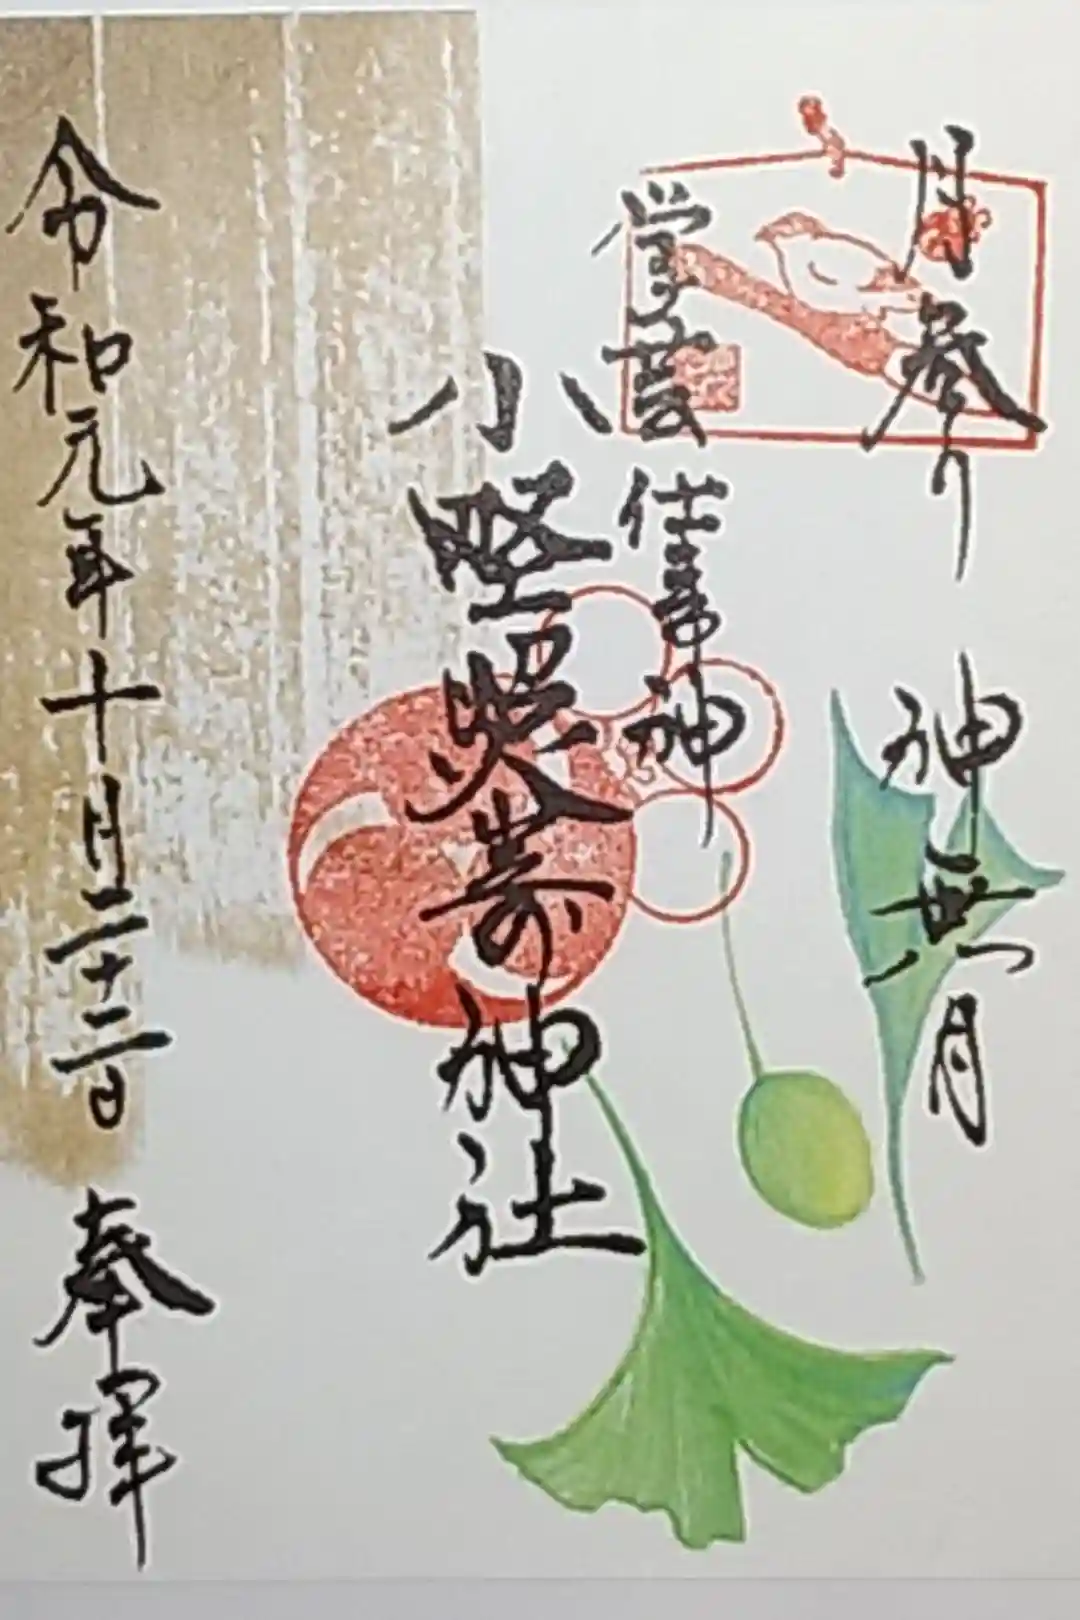 月参り 神無月
学芸 仕事神
小野照嵜神社
令和元年十月二十二日 奉拝